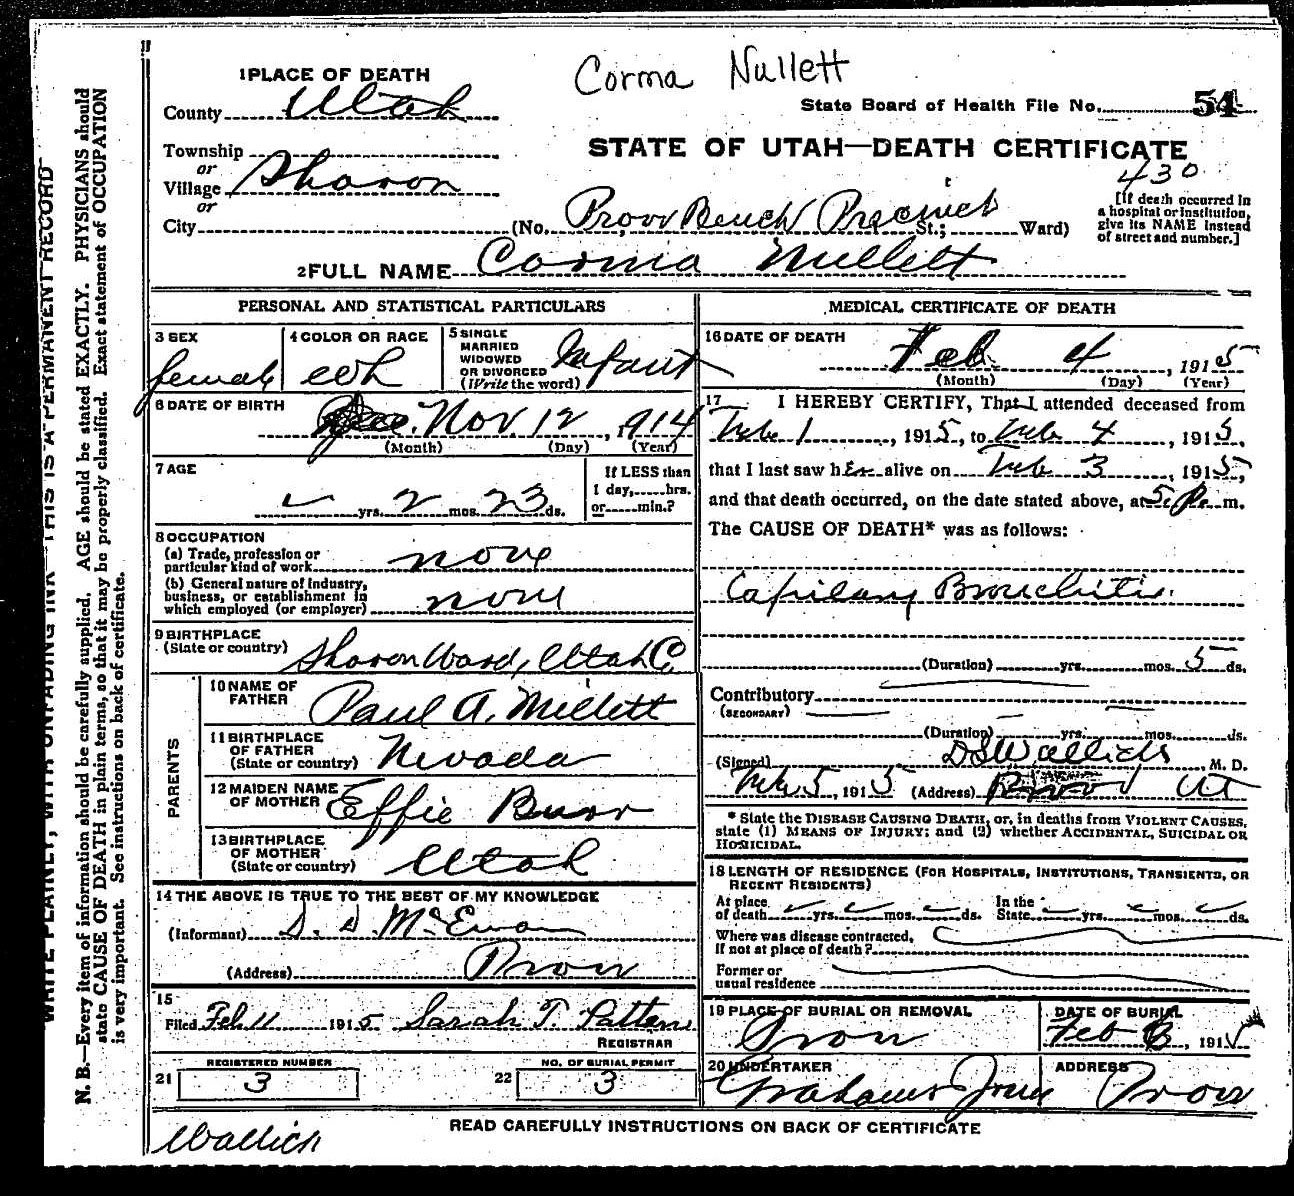 Corma Nullett
1 PLACE OF DEATH
County Utah
State Board of Health File No. 54
STATE OF UTAH—DEATH CERTIFICATE
Township
or
Village Sharon
or
City (No. Provo Bench Precinct St.; Ward)
430
[If death occurred in a hospital or institution, give its NAME instead of street and number.]
2 FULL NAME Corma Mullett
PERSONAL AND STATISTICAL PARTICULARS
3 SEX female
4 COLOR OR RACE wh
5 SINGLE MARRIED WIDOWED OR DIVORCED (Write the word) Infant
6 DATE OF BIRTH Nov. 12, 1914
(Month) (Day) (Year)
7 AGE yrs. 2 mos. 23 ds.
If LESS than 1 day, hrs. or min.?
8 OCCUPATION
(a) Trade, profession or particular kind of work none
(b) General nature of industry, business, or establishment in which employed (or employer) none
9 BIRTHPLACE (State or country) Sharon Ward, Utah Co
PARENTS
10 NAME OF FATHER Paul A. Millett
11 BIRTHPLACE OF FATHER (State or country) Nevada
12 MAIDEN NAME OF MOTHER Effie Burr
13 BIRTHPLACE OF MOTHER (State or country) Utah
14 THE ABOVE IS TRUE TO THE BEST OF MY KNOWLEDGE
(Informant) D. D. McEwan
(Address) Provo
15
Filed Feb 11 1915 Sarah T. Patten
REGISTRAR
REGISTERED NUMBER
21 3
NO. OF BURIAL PERMIT
22 3
MEDICAL CERTIFICATE OF DEATH
16 DATE OF DEATH Feb. 4, 1915
(Month) (Day) (Year)
17 I HEREBY CERTIFY, That I attended deceased from
Feb 1, 1915, to Feb 4, 1915,
that I last saw her alive on Feb 3, 1915,
and that death occurred, on the date stated above, at 5 P. m.
The CAUSE OF DEATH* was as follows:
Capilary Bronchitis.
(Duration) yrs. mos. 5 ds.
Contributory
(SECONDARY)
(Duration) yrs. mos. ds.
(Signed) D S Wallich, M. D.
Feb 5, 1915 (Address) Provo UT
* State the DISEASE CAUSING DEATH, or, in deaths from VIOLENT CAUSES,
state (1) MEANS OF INJURY; and (2) whether ACCIDENTAL, SUICIDAL OR
HOMICIDAL.
18 LENGTH OF RESIDENCE (FOR HOSPITALS, INSTITUTIONS, TRANSIENTS, OR
RECENT RESIDENTS)
At place of death yrs. mos. ds. In the State yrs. mos. ds.
Where was disease contracted,
If not at place of death?
Former or
usual residence
19 PLACE OF BURIAL OR REMOVAL Provo
DATE OF BURIAL Feb 6, 1915
20 UNDERTAKER
ADDRESS Provo
READ CAREFULLY INSTRUCTIONS ON BACK OF CERTIFICATE
Wallich
WRITE PLAINLY, WITH UNFADING INK—THIS IS A PERMANENT RECORD
N. B.—Every item of information should be carefully supplied. AGE should be stated EXACTLY. PHYSICIANS should
state CAUSE OF DEATH in plain terms, so that it may be properly classified. Exact statement of OCCUPATION
is very important. See instructions on back of certificate.